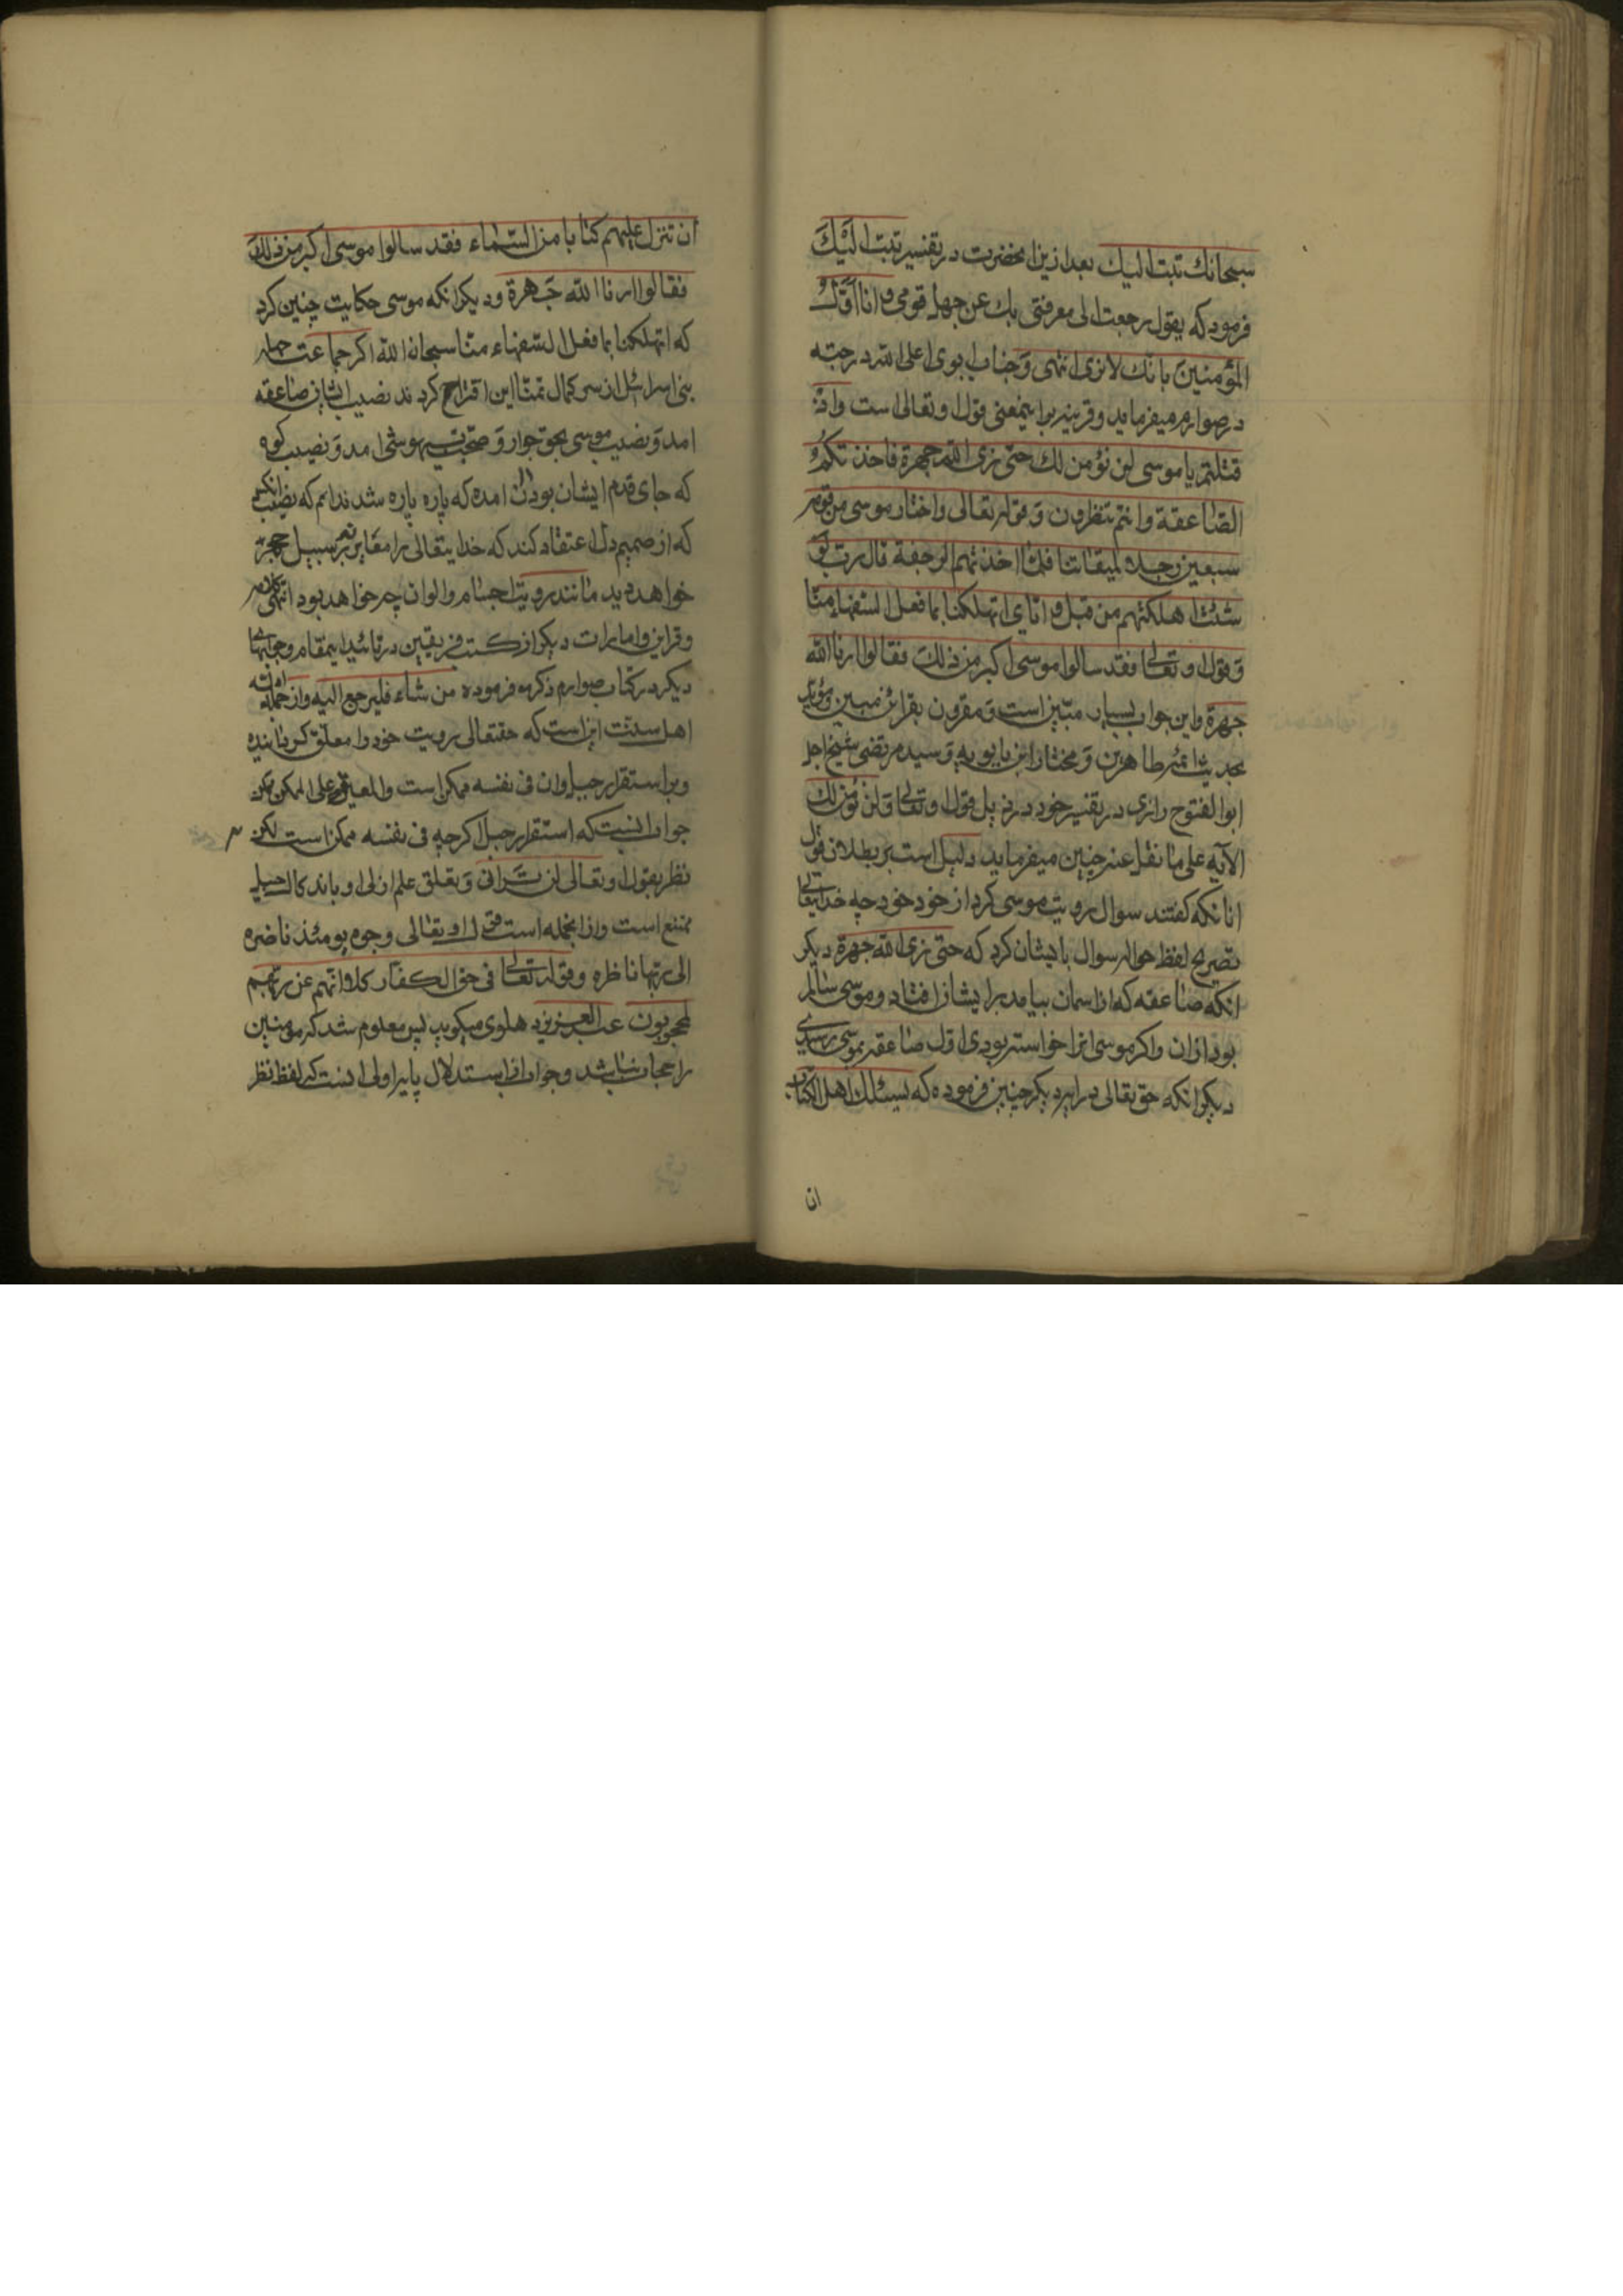 سبحانك تبت اليك بعد ازين انحضرت در تفسير تبت اليك
فرمود كه يقول رجعت الى معرفتى بك عن جهل قومى و انا اول
المؤمنين بانك لا ترى انتهى و جناب ابوى اعلى الله درجته
در صوارم ميفرمايد و قرينه بر اينمعنى قول او تعالى است و اذ
قتلتم يا موسى لن نؤمن لك حتى نرى الله جهرة فاخذتكم
الصاعقة و انتم تنظرون و قوله تعالى و اختار موسى من قومه
سبعين رجلا لميقاتنا فلما اخذتهم الرجفة قال رب لو
شئت اهلكتهم من قبل و اياى اتهلكنا بما فعل السفهاء منا
و قول او تعالى فقد سالوا موسى اكبر من ذلك فقالوا ارنا الله
جهرة و اين جواب بسيار متين است و مقرون بقرائن مبين و مؤيد
بحديث ائمه طاهرين و مختار ابن بابويه و سيد مرتضى شيخ اجل
ابو الفتوح رازى در تفسير خود در ذيل قول او تعالى و لن نؤمن لك
الآيه على ما نقل عنه چنين ميفرمايد دليل است بر بطلان قول
انانكه كفتند سوال رويت موسى كرد از خود خود چه خدايتعالى
تصريح لفظ حواله سوال بايشان كرد كه حتى نرى الله جهرة ديكر
انكه صاعقه كه از اسمان بيامد بر ايشان افتاد و موسى سالم
بود ازان و اكر موسى انرا خواسته بودى اول صاعقه بموسى رسيدى
ديكر انكه حق تعالى در ايه ديكر چنين فرموده كه يسئلك اهل الكتاب
ان
ان تنزل عليهم كتابا من السماء فقد سالوا موسى اكبر من ذلك
فقالوا ارنا الله جهرة و ديكر انكه موسى حكايت چنين كرد
كه اتهلكنا بما فعل السفهاء منا سبحان الله اكر جماعت جهله
بنى اسرائيل از سر كمال تمنا اين اقتراح كردند نصيب ايشان صاعقه
امد و نصيب موسى بحق جوار و صحبت بيهوشى امد و نصيب كوه
كه جاى قدم ايشان بود ان امده كه پاره پاره شد ندانم كه نصيب انكس
كه از صميم دل اعتقاد كند كه خدايتعالى را معاينه بر سبيل جهرة
خواهد ديد مانند رويت اجسام و الوان چه خواهد بود انتهى كلامه
و قراين و امارات ديكر از كتب فريقين در تائيد اينمقام و جوابهاى
ديكر در كتاب صوارم ذكر فرموده من شاء فليرجع اليه و از جمله ادله
اهل سنت اين است كه حقتعالى رويت خود را معلق كردانيده
و بر استقرار جبل و ان فى نفسه ممكن است و المعلق على الممكن ممكن
جواب انست كه استقرار جبل اكرچه فى نفسه ممكن است لكن
نظر بقول او تعالى لن ترانى و تعلق علم ازلى او باندكاك جبل
ممتنع است و از انجمله است قول او تعالى وجوه يومئذ ناضره
الى ربها ناظره و قوله تعالى فى حق الكفار كلا انهم عن ربهم
لمحجوبون عبد العزيز دهلوى ميكويد پس معلوم شد كه مومنين
را حجاب نباشد و جواب از استدلال بايه اولى انست كه لفظ نظر